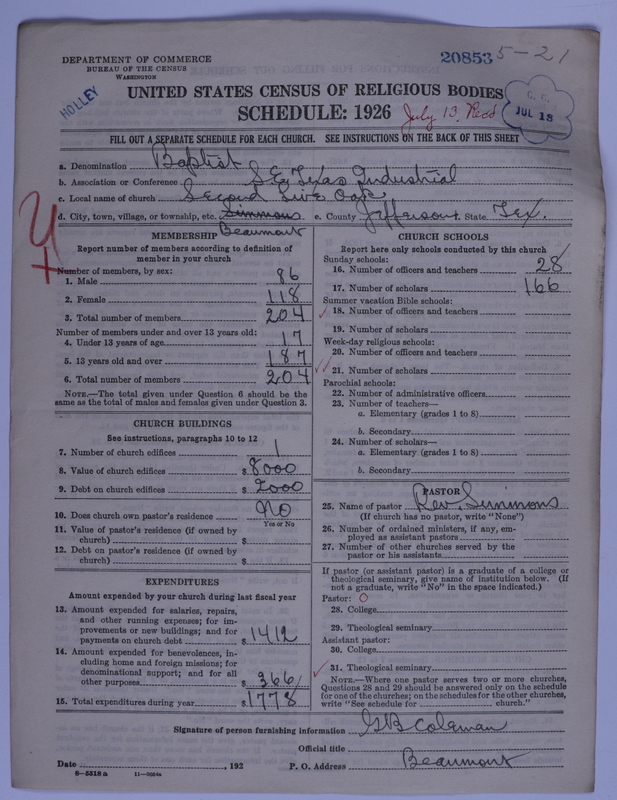 DEPARTMENT OF COMMERCE
BUREAU OF THE CENSUS
WASHINGTON
20853 5-21
HOLLEY
UNITED STATES CENSUS OF RELIGIOUS BODIES
SCHEDULE: 1926
July 13, Recd
C. C.
JUL 18
FILL OUT A SEPARATE SCHEDULE FOR EACH CHURCH. SEE INSTRUCTIONS ON THE BACK OF THIS SHEET
a. Denomination Baptist
b. Association or Conference S.E. Texas Industrial
c. Local name of church Second Live Oak
d. City, town, village, or township, etc. Simmons e. County Jefferson State Tex.
Beaumont
MEMBERSHIP
Report number of members according to definition of
member in your church
Number of members, by sex:
1. Male 86
2. Female 118
3. Total number of members 204
Number of members under and over 13 years old:
4. Under 13 years of age 17
5. 13 years old and over 187
6. Total number of members 204
NOTE.—The total given under Question 6 should be
same as the total of males and females given under Question 3.
CHURCH BUILDINGS
See instructions, paragraphs 10 to 12
7. Number of church edifices 1
8. Value of church edifices $ 8000
9. Debt on church edifices $ 2000
10. Does church own pastor's residence No
Yes or No
11. Value of pastor's residence (if owned by
church) $
12. Debt on pastor's residence (if owned by
church) $
EXPENDITURES
Amount expended by your church during last fiscal year
13. Amount expended for salaries, repairs,
and other running expenses; for im-
provements or new buildings; and for
payments on church debt $ 1412
14. Amount expended for benevolences, in-
cluding home and foreign missions; for
denominational support; and for all
other purposes $ 366
15. Total expenditures during year $ 1778
CHURCH SCHOOLS
Report here only schools conducted by this church
Sunday schools:
16. Number of officers and teachers 28
17. Number of scholars 166
Summer vacation Bible schools:
18. Number of officers and teachers
19. Number of scholars
Week-day religious schools:
20. Number of officers and teachers
21. Number of scholars
Parochial schools:
22. Number of administrative officers
23. Number of teachers—
a. Elementary (grades 1 to 8)
b. Secondary
24. Number of scholars—
a. Elementary (grades 1 to 8)
b. Secondary
PASTOR
25. Name of pastor Rev. Simmons
(If church has no pastor, write "None")
26. Number of ordained ministers, if any, em-
ployed as assistant pastors
27. Number of other churches served by the
pastor or his assistants
If pastor (or assistant pastor) is a graduate of a college or
theological seminary, give name of institution below. (If
not a graduate, write "No" in the space indicated.)
Pastor: O
28. College
29. Theological seminary
Assistant pastor:
30. College
31. Theological seminary
NOTE.—Where one pastor serves two or more churches,
Questions 28 and 29 should be answered only on the schedule
for one of the churches; on the schedules for the other churches,
write "See schedule for church."
Signature of person furnishing information G B Coleman
Official title
Date , 192 P. O. Address Beaumont
8—5518 a 11—9064a